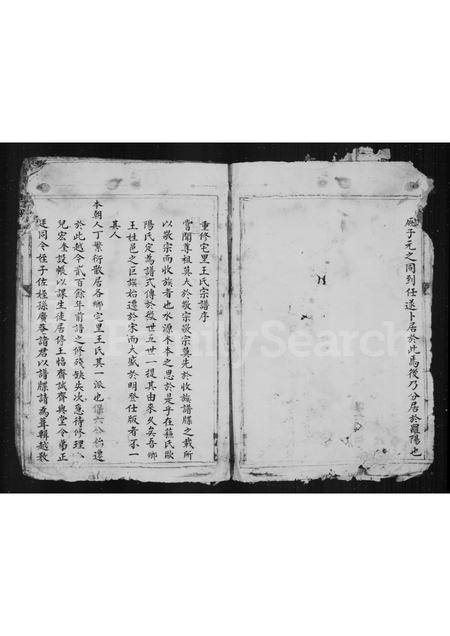 庭子元之同到任遂卜居於此焉後乃分居於羅陽也
重修宅里王氏宗譜序
嘗聞尊祖莫大於敬宗敬宗莫先於收族譜牒之載所
以敬宗而收族者也水源木本之思於是乎在蘇氏歐
陽氏定為譜式傳於後世五世一提其由來久矣吾鄉
王姓邑之巨族始遷於宋而大盛於明登仕版者不一
其人
本朝人丁繁衍散居各鄉宅里王氏其一派也 始遷
於此越今貳百餘年前譜之修殘缺失次急待修理
兒宏奎設帳以課生徒居停王恪齋誠齋與堂令弟正
廷同令姪子佐姪孫廣等諸君以譜牒請為葺輯越數
FamilySearch